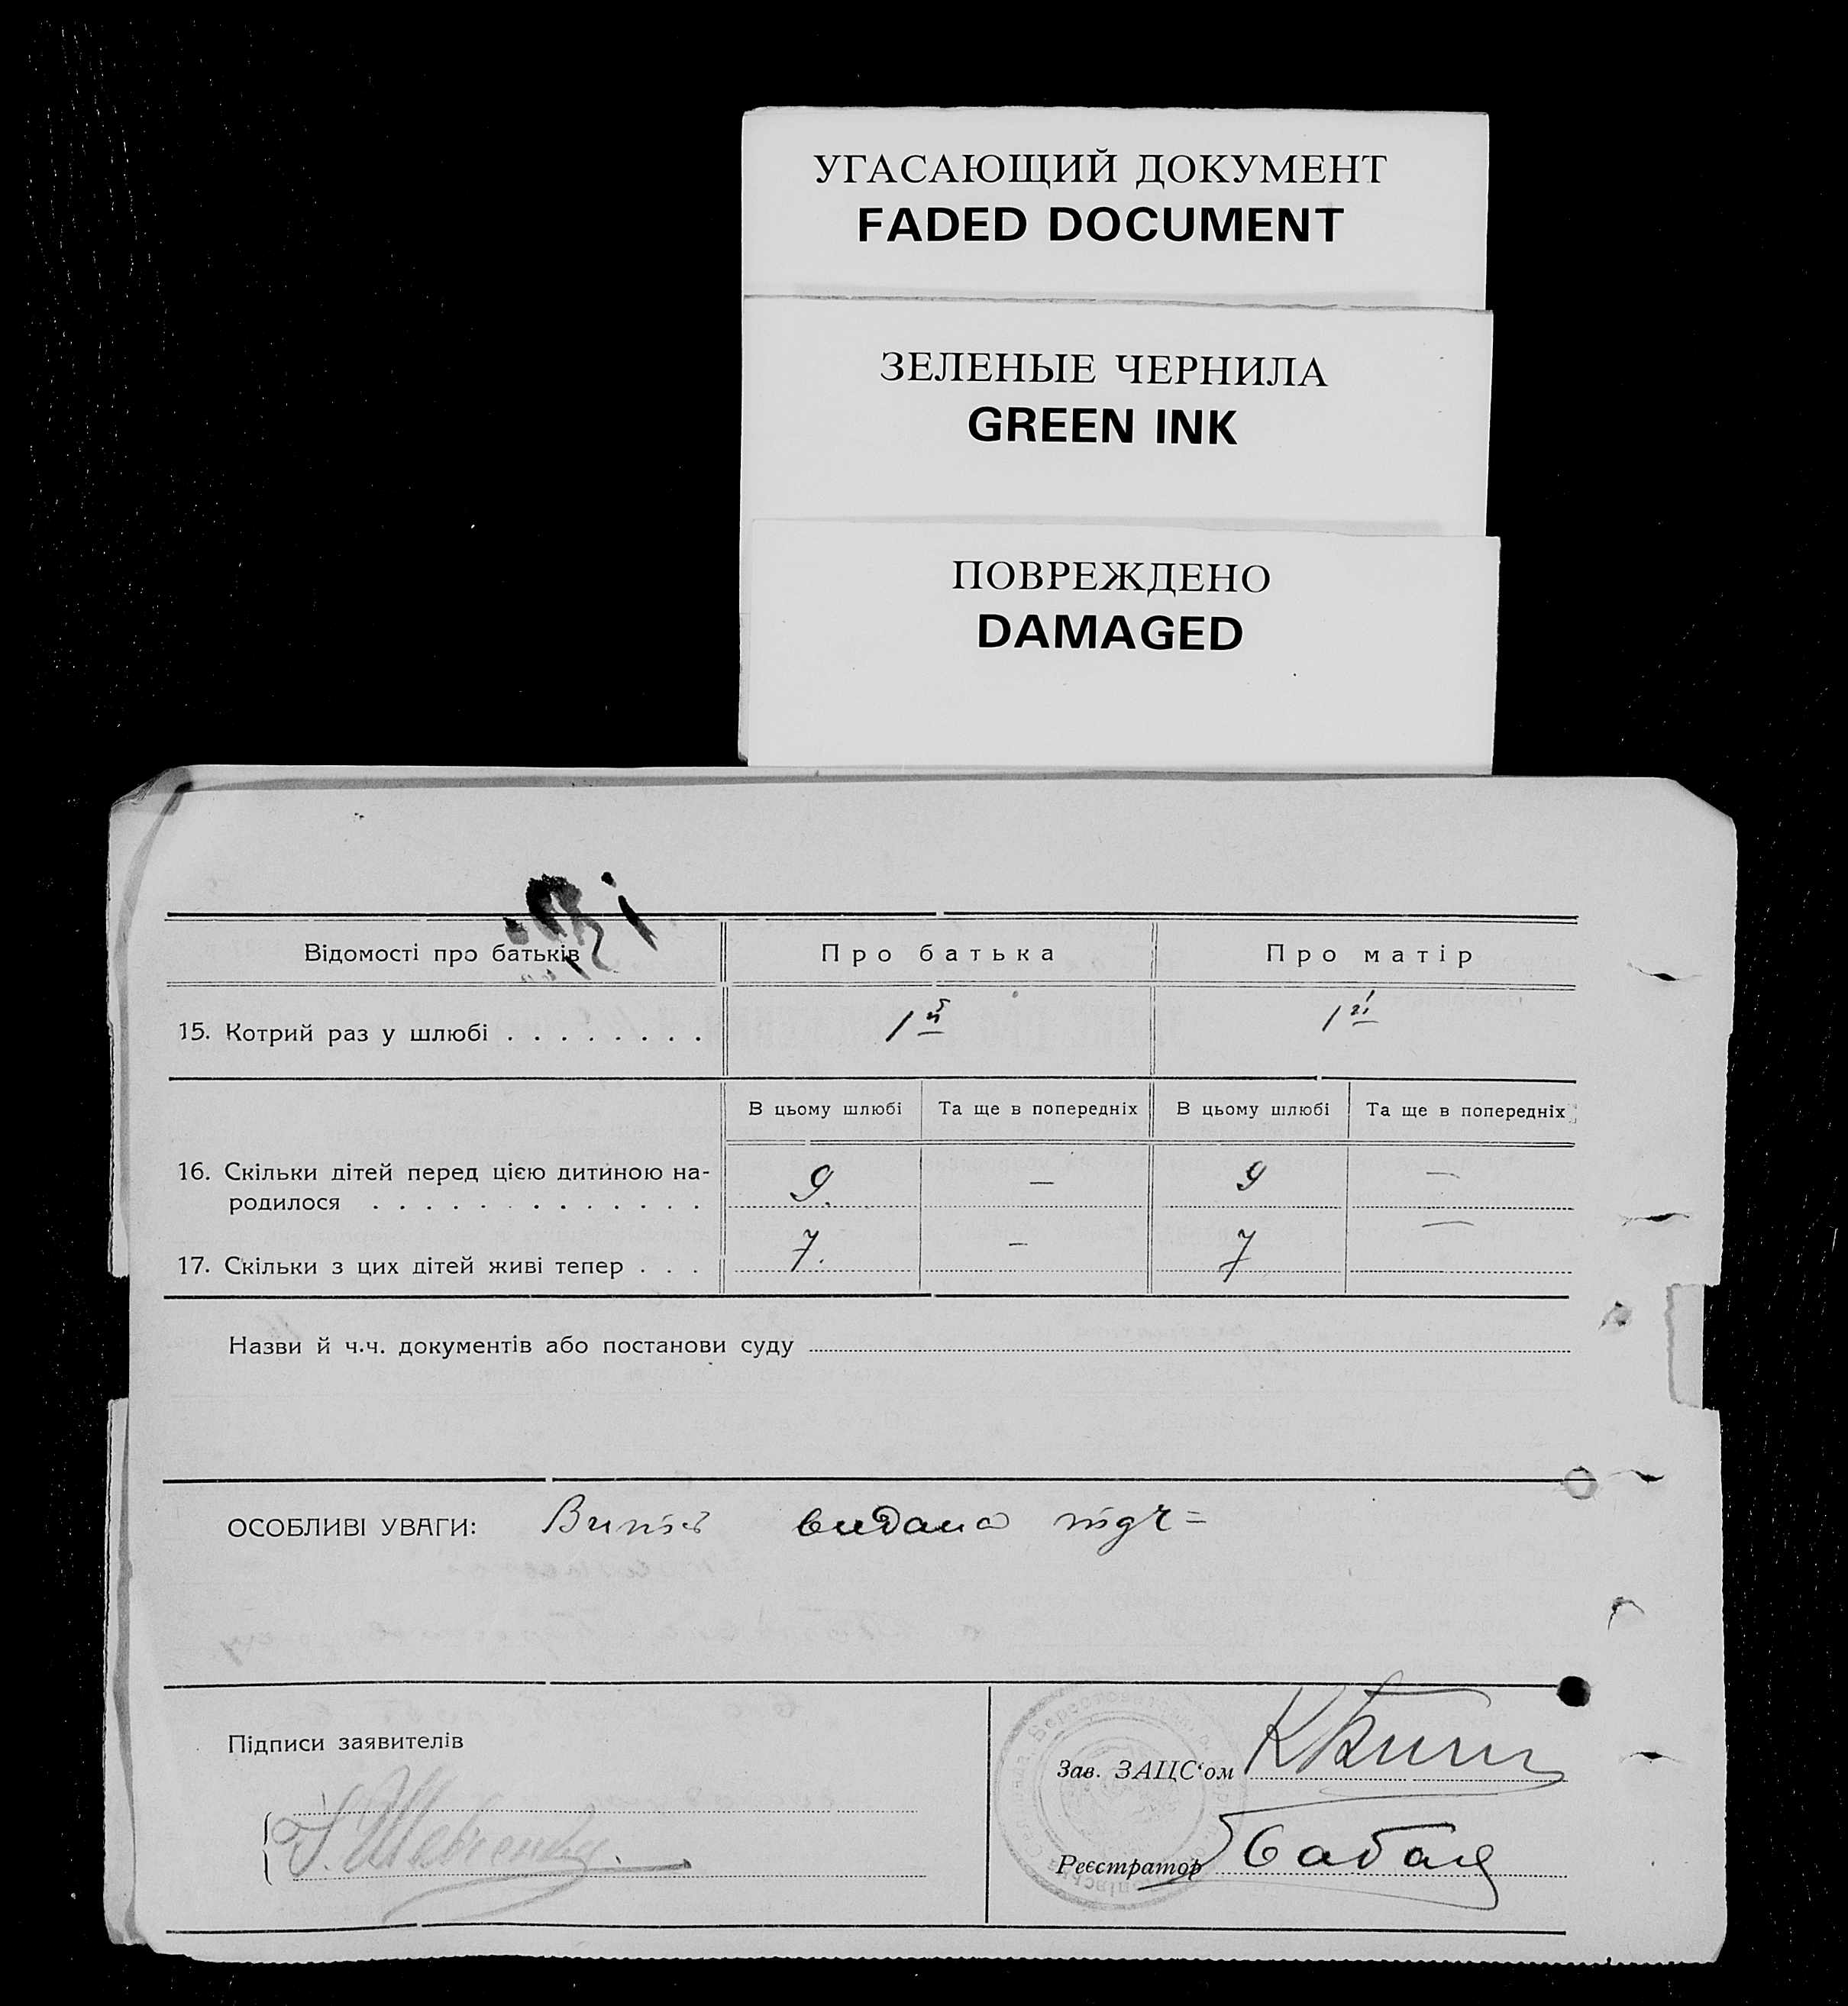 УГАСАЮЩИЙ ДОКУМЕНТ
FADED DOCUMENT
ЗЕЛЕНЫЕ ЧЕРНИЛА
GREEN INK
ПОВРЕЖДЕНО
DAMAGED
Відомості про батьків Про батька Про матір
15. Котрий раз у шлюбі . . . . . . . . 1й 1й
В цьому шлюбі Та ще в попередніх В цьому шлюбі Та ще в попередніх
16. Скільки дітей перед цією дитиною на-
родилося . . . . . . . . . . . . . 9. — 9 —
17. Скільки з цих дітей живі тепер . . . 7. — 7 —
Назви й ч.ч. документів або постанови суду
ОСОБЛИВІ УВАГИ: видана
Підписи заявителів
Зав. ЗАЦС'ом
Шевченко
Реєстратор